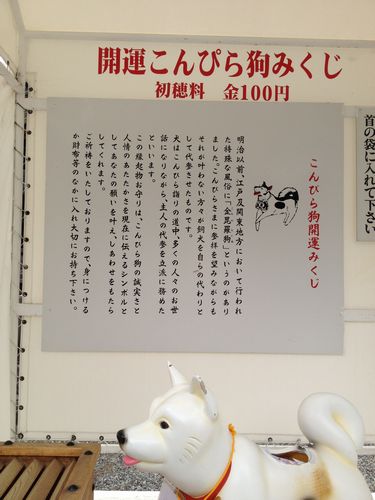 開運こんぴら狗みくじ
初穂料　金100円
首の袋に入れて
こんぴら狗開運みくじ
明治以前、江戸及関東地方において行われ
た特殊な風俗に「金毘羅狗」というのがあり
ました。こんぴらさまに参拝を望みながらも
それが叶わない方々が飼犬を自らの代わりと
して代参させたものです。
犬はこんぴら詣りの道中、多くの人々のお世
話になりながら、主人の代参を立派に務めた
といいます。
この縁起物お守りは、こんぴら狗の誠実さと
人情のあたたかさを現在に伝えるシンボルと
してあなたの願いを叶え、しあわせをもたら
してくれます。
ご祈祷をいたしておりますので、身につける
か財布等のなかに入れ大切にお持ち下さい。